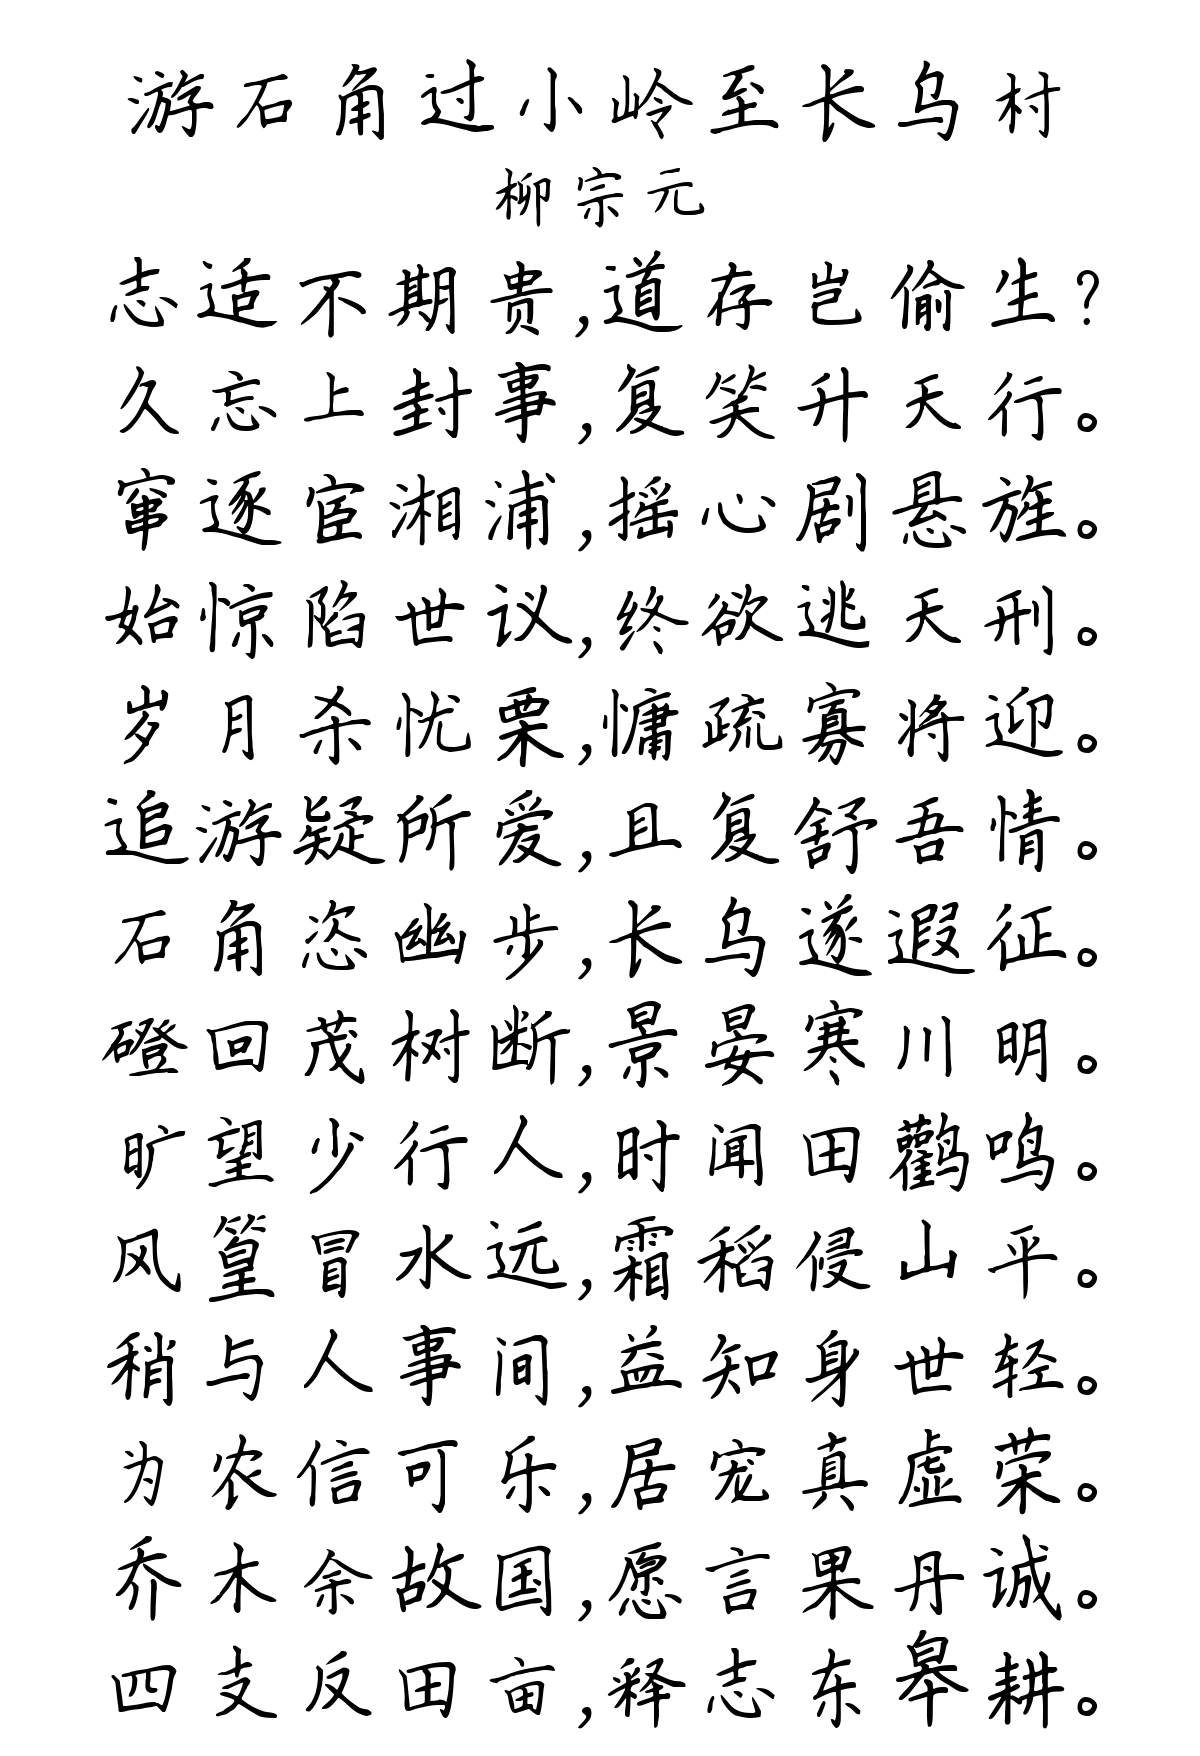 游石角过小岭至长乌村
柳宗元
志适不期贵,道存岂偷生?
久忘上封事,复笑升天行。
窜逐宦湘浦,摇心剧悬旌。
始惊陷世议,终欲逃天刑。
岁月杀忧栗,慵疏寡将迎。
追游疑所爱,且复舒吾情。
石角恣幽步,长乌遂遐征。
磴回茂树断,景晏寒川明。
旷望少行人,时闻田鹳鸣。
风篁冒水远,霜稻侵山平。
稍与人事间,益知身世轻。
为农信可乐,居宠真虚荣。
乔木余故国,愿言果丹诚。
四支反田亩,释志东皋耕。